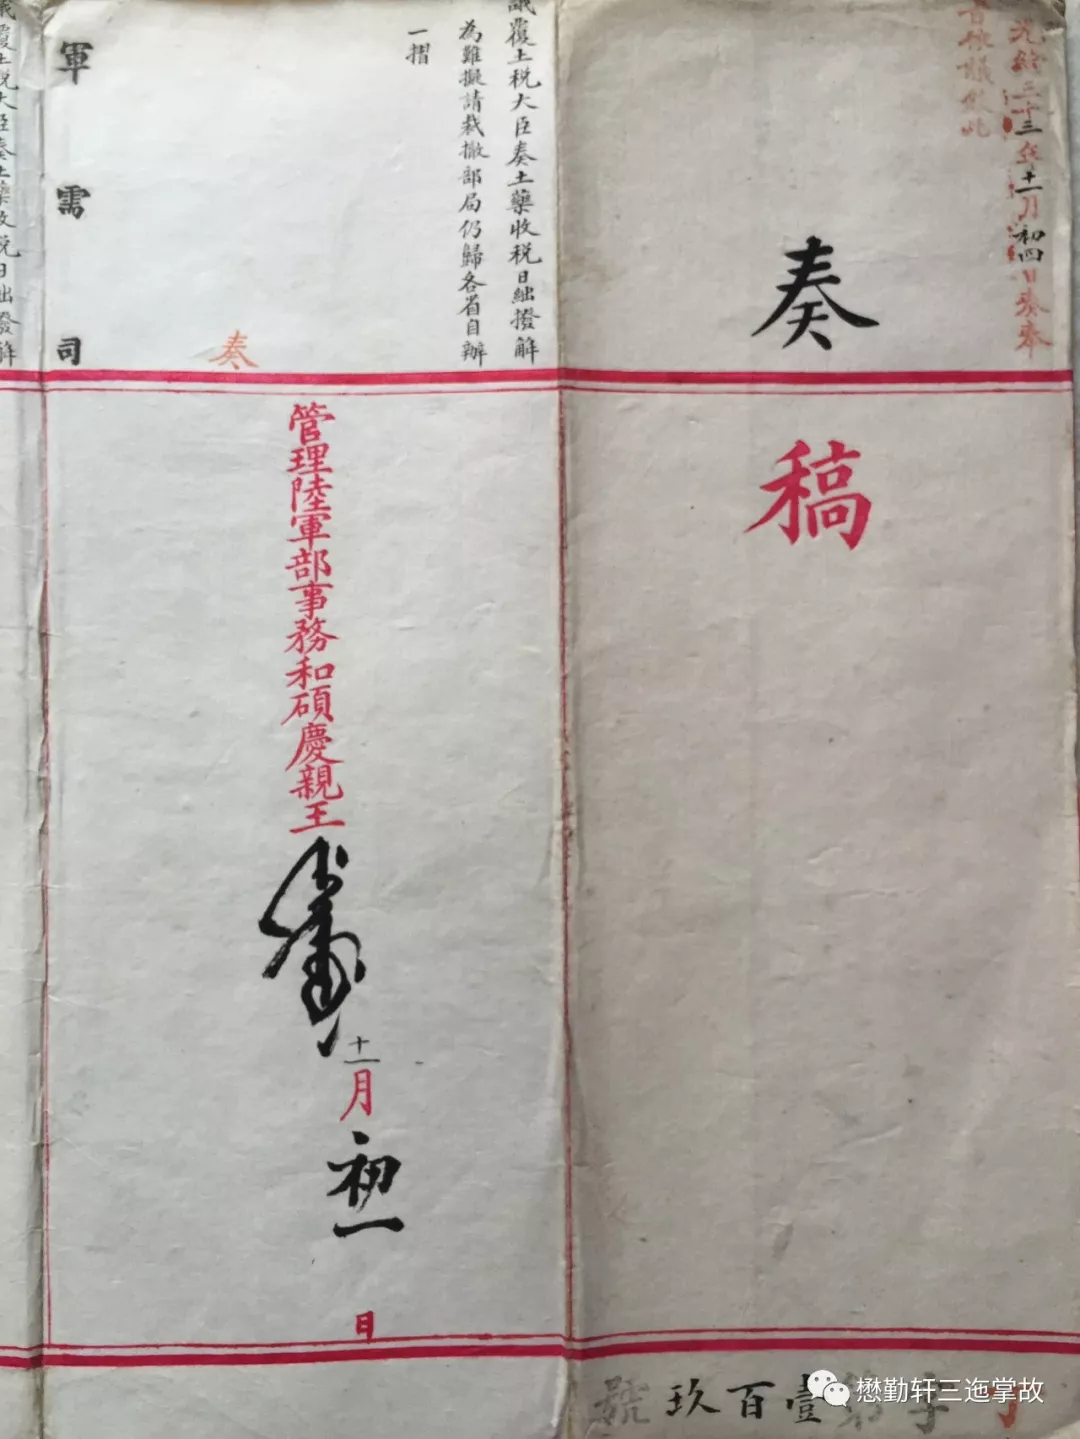 光緒三十三年十一月初四日具奏奉
旨依議欽此
奏
稿
字第壹百玖號
議覆土税大臣奏土藥收税日絀撥解
為難擬請裁撤部局仍歸各省自辦
一摺
奏
管理陸軍部事務和碩慶親王
十一月初一日
軍需司
議覆土税大臣奏土藥收税日絀撥解
懋勤轩三迤掌故